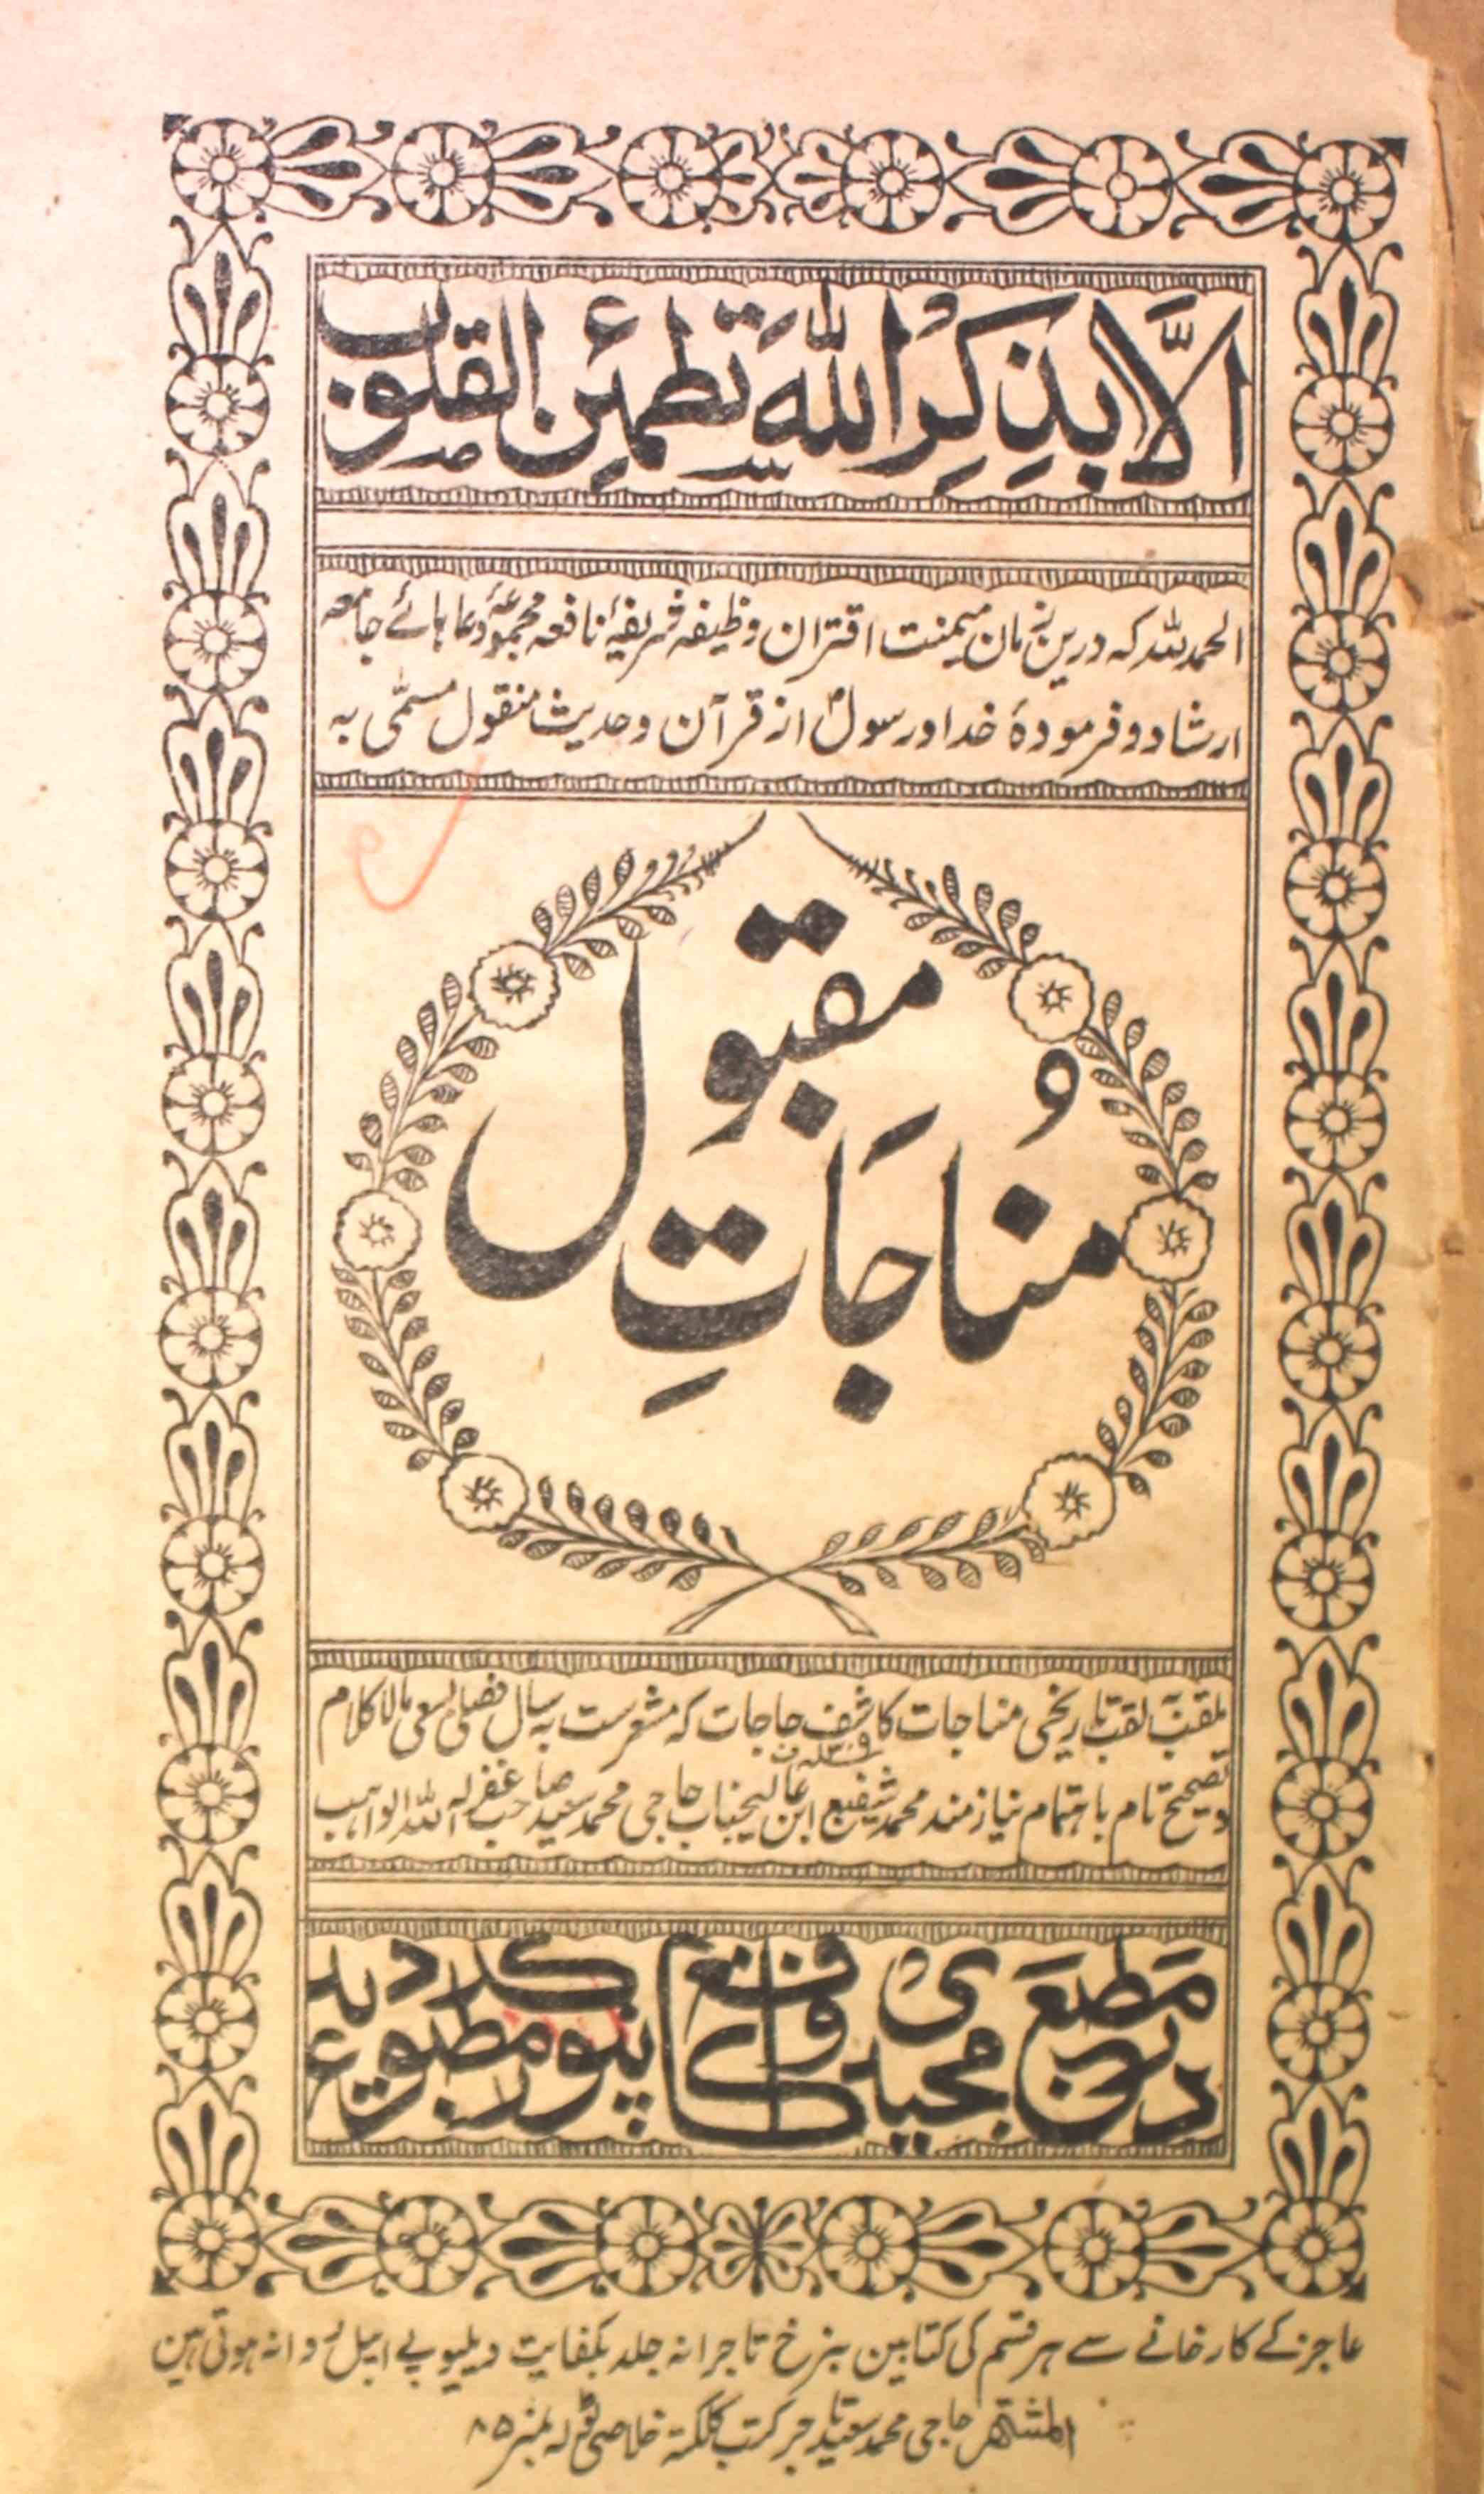 اَلَّا بِذِكِرْ اللّٰهِ تَطْمَئِن القلوب
الحمدللہ کہ درین زمان میمنت اقتران وظیفہ شریفۂ نافعہ مجموعۂ دعا ہائے جامعہ
ارشاد و فرمودۂ خدا و رسولؐ از قرآن و حدیث منقول مسمّٰی بہ
مُناجَاتِ مقبول
ملقب بہ لقب تاریخی مناجات کاشف حاجات کہ مشعرست بہ سال فصلی بسعی مالاکلام
و تصحیح تام باہتمام نیازمند محمد شفیع ابن عالیجناب حاجی محمد سعید صاحب غفر لہ اللہ الواہب
در مطبع مجیدی واقع کانپور مطبوع گردید
عاجز کے کارخانے سے ہر قسم کی کتابین بنرخ تاجرانہ جلد بکفایت ویلیو پے ایبل روانہ ہوتی ہین
المشتہر حاجی محمد سعید تاجر کتب کلکتہ خلاصی ٹولہ نمبر ۸۵